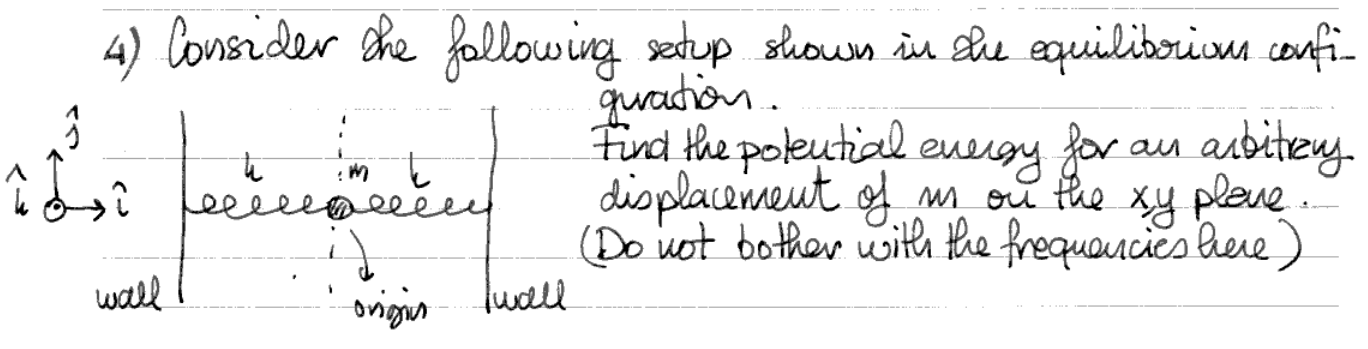 4) Consider the following setup shown in the equilibrium confi-
guration.
Find the potential energy for an arbitrary
displacement of m on the x,y plane.
(Do not bother with the frequencies here)
ĵ
k̂
î
k
m
k
wall
origin
wall